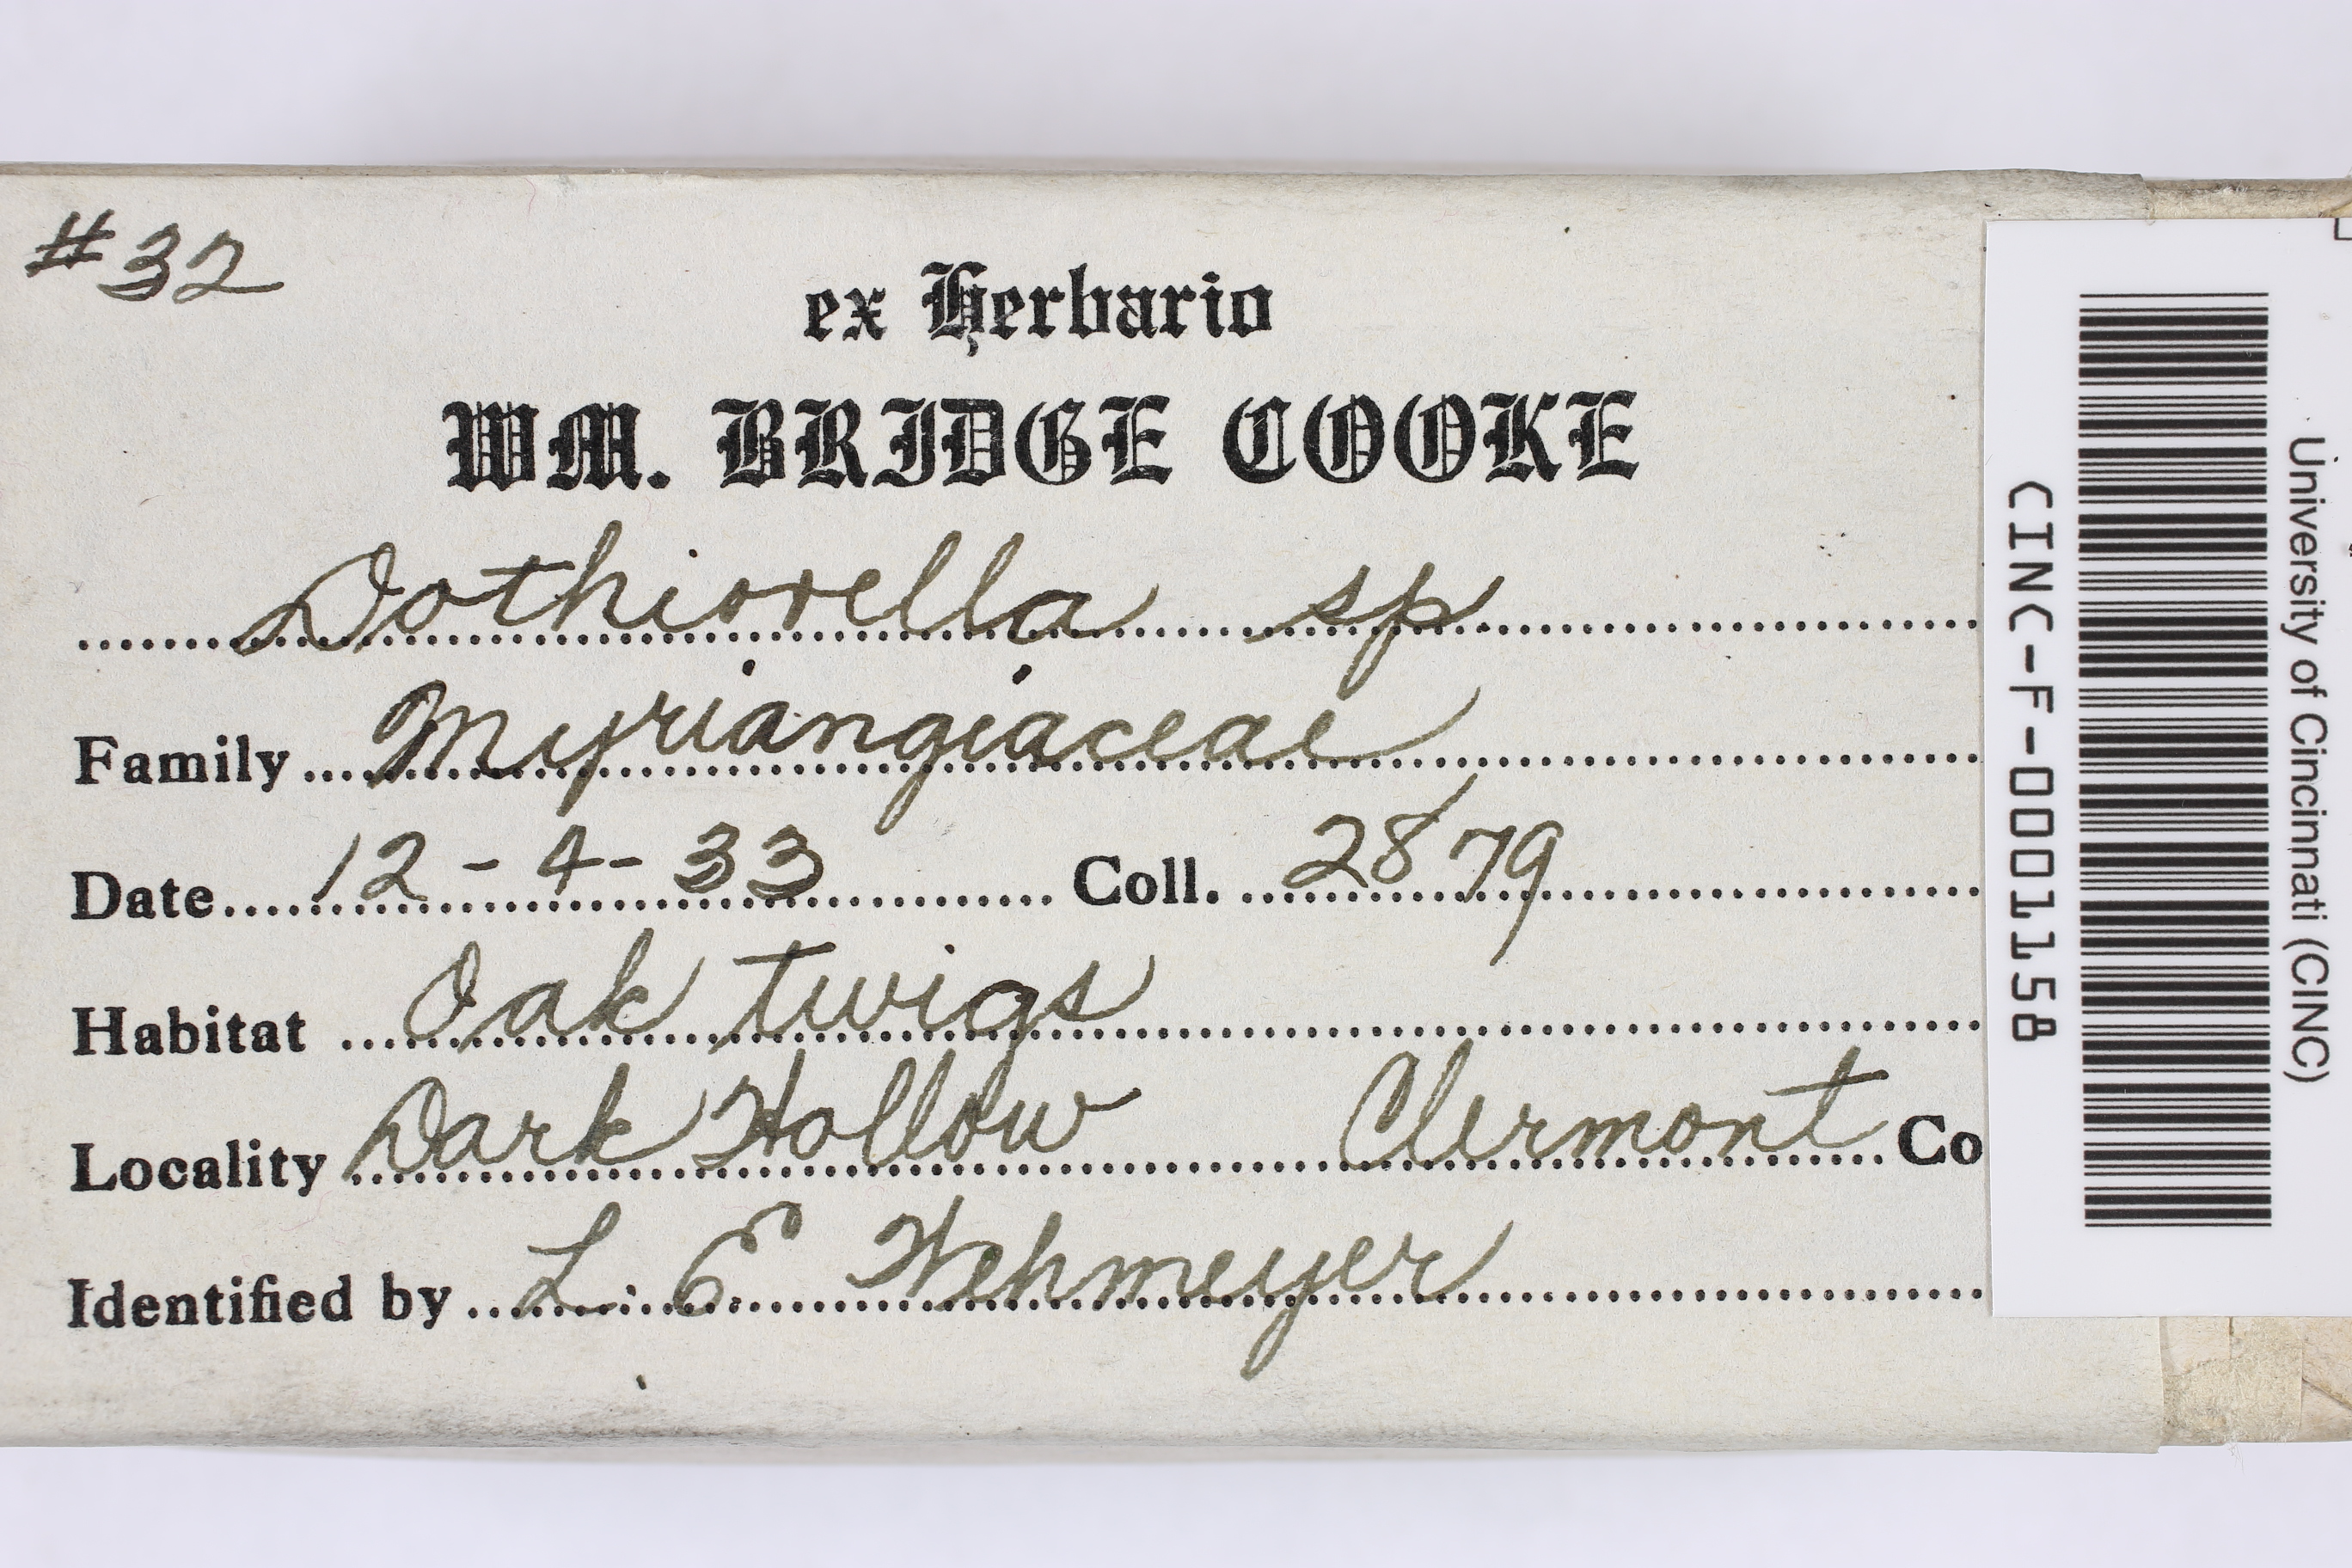 #32
ex Herbario
WM. BRIDGE COOKE
Dothiorella sp.
Family Myriangiaceae
Date 12-4-33 Coll. 2879
Habitat Oak twigs
Locality Dark Hollow Clermont Co
Identified by L. E. Wehmeyer
CINC-F-0001158
University of Cincinnati (CINC)